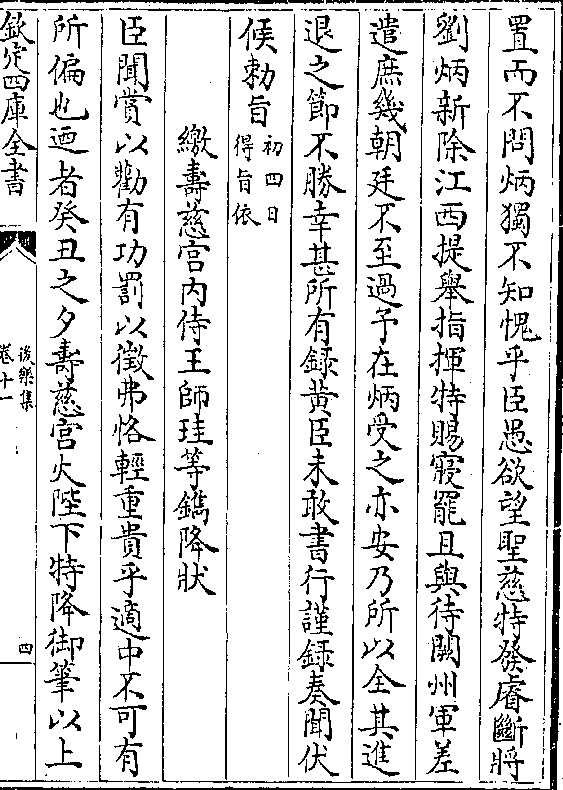 置而不問炳獨不知愧乎臣愚欲望聖慈特發睿斷將
劉炳新除江西提舉指揮特賜寢罷且與待闕州軍差
遣庶幾朝廷不至過予在炳受之亦安乃所以全其進
退之節不勝幸甚所有録黄臣未敢書行謹録奏聞伏
候勅旨初四日得旨依
繳壽慈宫内侍王師珪等鐫降狀
臣聞賞以勸有功罰以懲弗恪輕重貴乎適中不可有
所偏也迺者癸丑之夕壽慈宫火陛下特降御筆以上
欽定四庫全書
後樂集
卷十一
四